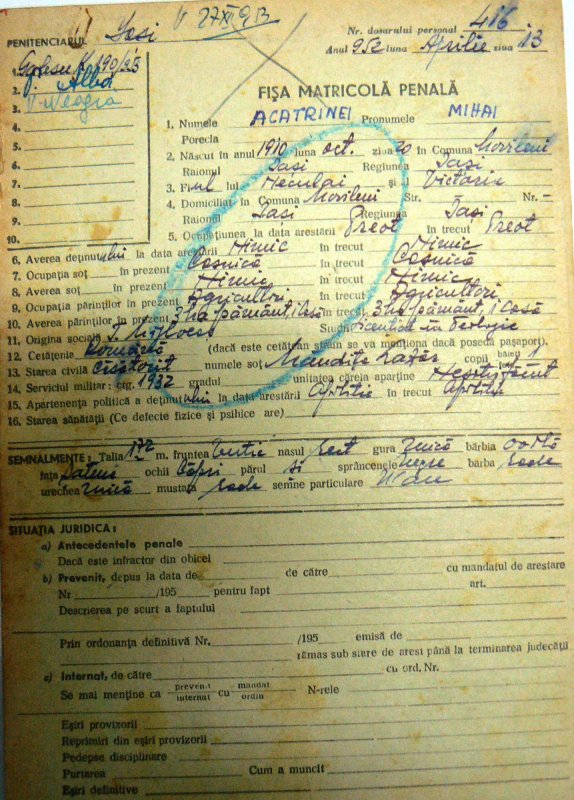 27 XI 953
PENITENCIARUL Iasi
Nr. dosarului personal 416
Anul 952 luna Aprilie ziua 13
1. 190/953
2. Alba
3. V. Neagra
4.
5.
6.
7.
8.
9.
10.
FIŞA MATRICOLĂ PENALĂ
1. Numele ACATRINEI Pronumele MIHAI
Porecla
2. Născut în anul 1910 luna oct. ziua 20 în Comuna Movileni
Raionul Iasi Regiunea Iasi
3. Fiul lui Neculai şi al Victoria
4. Domiciliat în Comuna Movileni Str. Nr. –
Raionul Iasi Regiunea Iasi
5. Ocupaţiunea la data arestării Preot în trecut Preot
6. Averea deţinutului la data arestării Nimic în trecut Nimic
7. Ocupaţia soţ în prezent Casnică în trecut Casnică
8. Averea soţ în prezent Nimic în trecut Nimic
9. Ocupaţia părinţilor în prezent Agricultori în trecut Agricultori
10. Averea părinţilor în prezent 3 ha pămant, 1 casă în trecut 3 ha pămant, 1 Casă
11. Origina socială T. Mijlocaş Studii Licentiat in Teologie
12. Cetăţenia Română (dacă este cetăţean străin se va menţiona dacă poseda paşaport).
13. Starea civilă Căsătorit numele soţ Lazăr copii baieţi 1
14. Serviciul militar: ctg. 1932 gradul unitatea căreia aparţine Nesatisfăcut
15. Apartenenţa politică a deţinutului la data arestării Apolitic în trecut Apolitic
16. Starea sănătăţii (Ce defecte fizice şi psihice are)
SEMNALMENTE: Talia 172 m. fruntea nasul Rect gura Mică bărbia
faţa ochii Căpri părul şi sprâncenele Negre barba Rade
urechea Mică mustaţa Rade semne particulare N'are
SITUAŢIA JURIDICA:
a) Antecedentele penale
Dacă este infractor din obicei
b) Prevenit, depus la data de de către cu mandatul de arestare
Nr /195 pentru fapt art.
Descrierea pe scurt a faptului
Prin ordonanţa definitivă Nr. /195 emisă de
rămas sub stare de arest până la terminarea judecăţii
c) Internat, de către cu ord. Nr.
Se mai menţine ca prevenit internat cu mandat ordin N-rele
Eşiri provizorii
Reprimiri din eşiri provizorii
Pedepse disciplinare
Purtarea Cum a muncit
Eşiri definitive